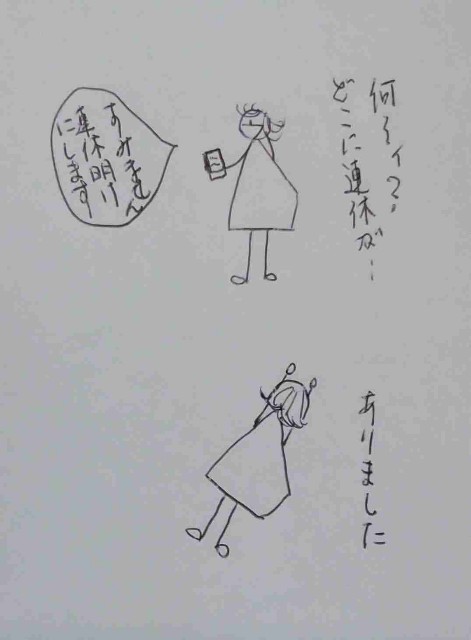 何
どこに連休が…
すみません
連休明け
にします
ありました